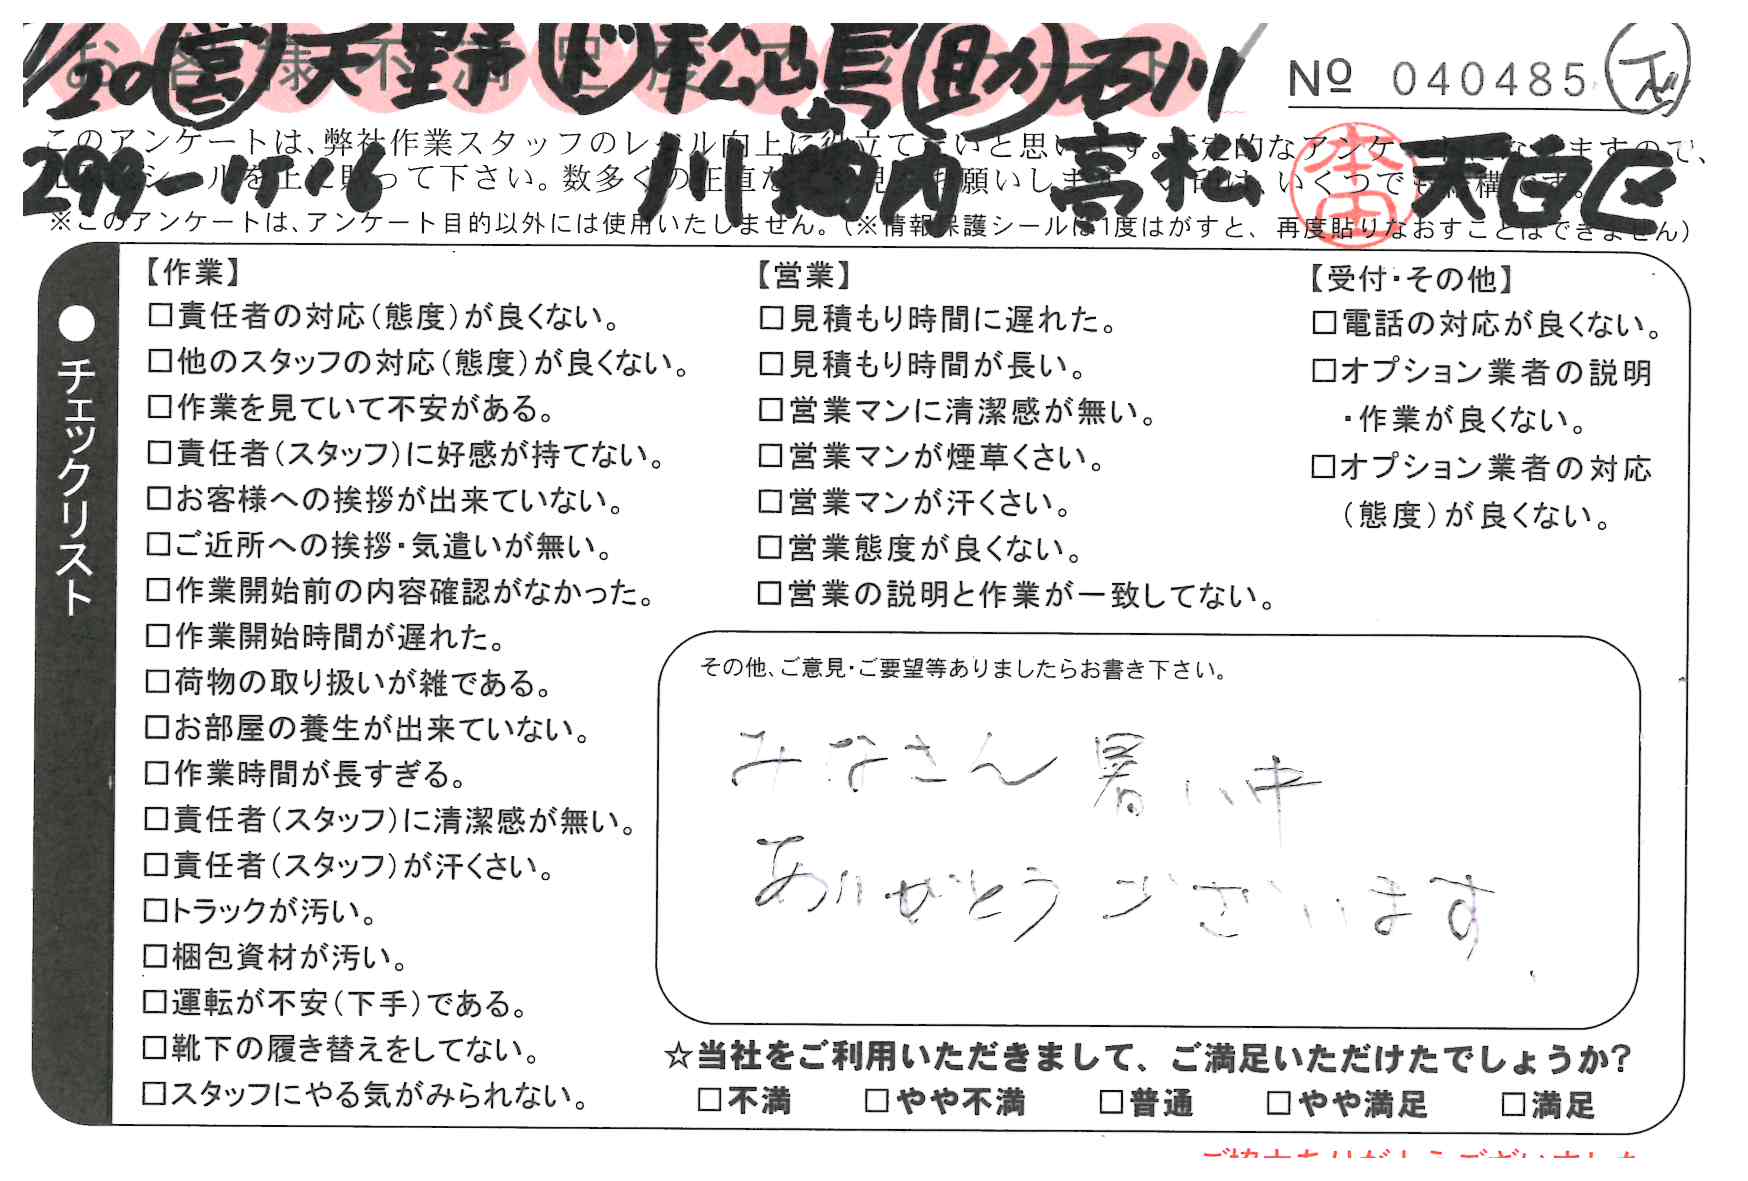 お客様不満足度アンケート
/20 営 天野 ド 松島 助 石川
№ 040485
このアンケートは、弊社作業スタッフのレベル向上に役立てたいと思います。定的なアンケートになりますので、
299-1516 川 内 高松 本田 天白区
シールを上に貼って下さい。数多くの正直な 見 お願いします。 印は、いくつでも結構です。
※このアンケートは、アンケート目的以外には使用いたしません。(※情報保護シールは1度はがすと、再度貼りなおすことはできません)
●チェックリスト
【作業】
□責任者の対応(態度)が良くない。
□他のスタッフの対応(態度)が良くない。
□作業を見ていて不安がある。
□責任者(スタッフ)に好感が持てない。
□お客様への挨拶が出来ていない。
□ご近所への挨拶・気遣いが無い。
□作業開始前の内容確認がなかった。
□作業開始時間が遅れた。
□荷物の取り扱いが雑である。
□お部屋の養生が出来ていない。
□作業時間が長すぎる。
□責任者(スタッフ)に清潔感が無い。
□責任者(スタッフ)が汗くさい。
□トラックが汚い。
□梱包資材が汚い。
□運転が不安(下手)である。
□靴下の履き替えをしてない。
□スタッフにやる気がみられない。
【営業】
□見積もり時間に遅れた。
□見積もり時間が長い。
□営業マンに清潔感が無い。
□営業マンが煙草くさい。
□営業マンが汗くさい。
□営業態度が良くない。
□営業の説明と作業が一致してない。
【受付・その他】
□電話の対応が良くない。
□オプション業者の説明
・作業が良くない。
□オプション業者の対応
(態度)が良くない。
その他、ご意見・ご要望等ありましたらお書き下さい。
みなさん暑い中
ありがとうございます
☆当社をご利用いただきまして、ご満足いただけたでしょうか?
□不満 □やや不満 □普通 □やや満足 □満足
ご協力ありがとうございました